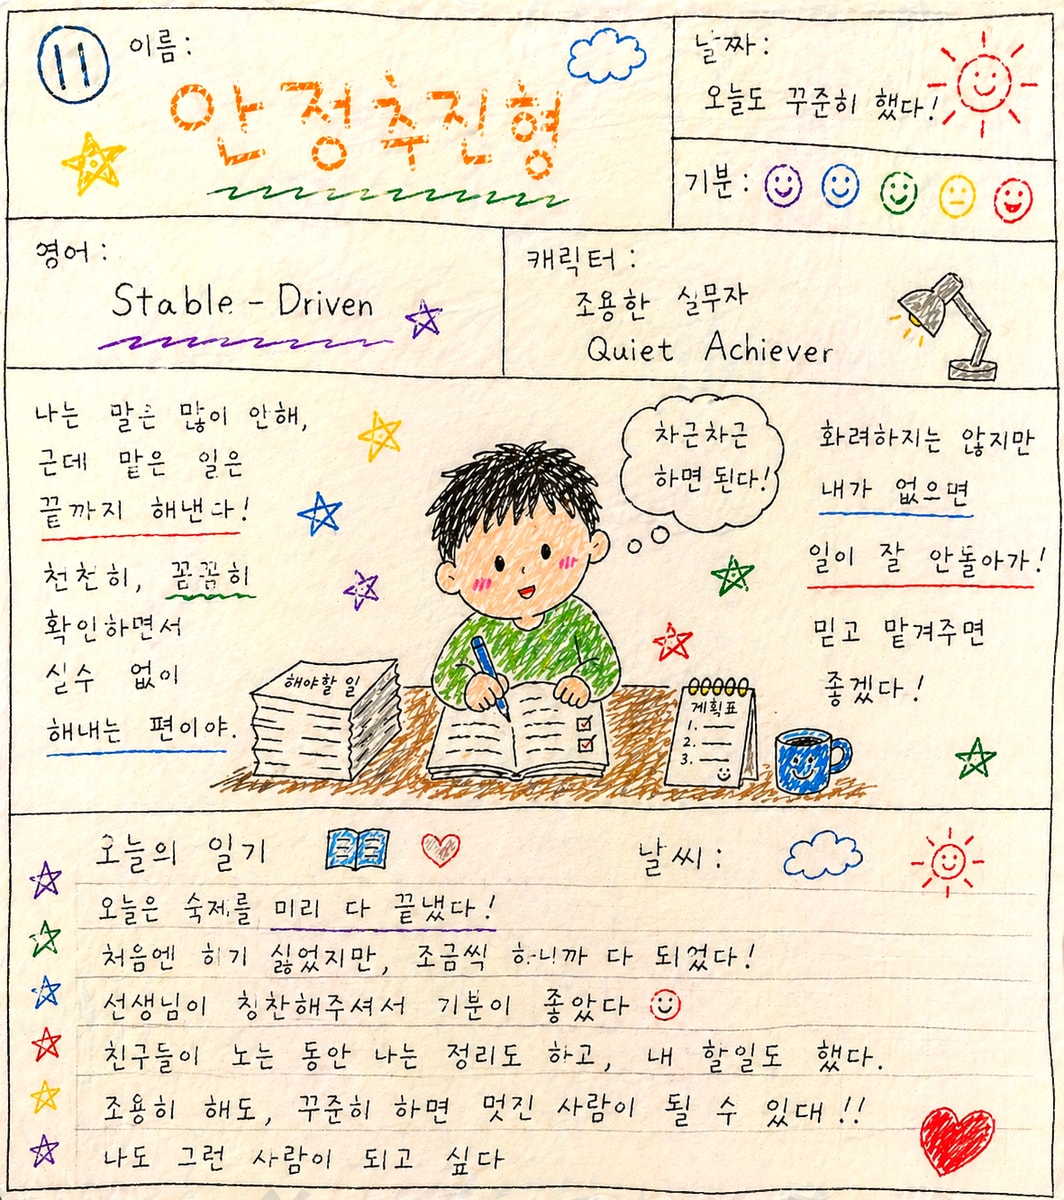 11
이름:
안정추진형
날짜:
오늘도 꾸준히 했다!
기분:
영어:
Stable-Driven
캐릭터:
조용한 실무자
Quiet Achiever
나는 말은 많이 안해,
근데 맡은 일은
끝까지 해낸다!
천천히, 꼼꼼히
확인하면서
실수 없이
해내는 편이야.
차근차근
하면 된다!
화려하지는 않지만
내가 없으면
일이 잘 안돌아가!
믿고 맡겨주면
좋겠다!
해야할 일
계획표
1.
2.
3.
오늘의 일기
날씨:
오늘은 숙제를 미리 다 끝냈다!
처음엔 하기 싫었지만, 조금씩 하니까 다 되었다!
선생님이 칭찬해주셔서 기분이 좋았다
친구들이 노는 동안 나는 정리도 하고, 내 할일도 했다.
조용히 해도, 꾸준히 하면 멋진 사람이 될 수 있대!!
나도 그런 사람이 되고 싶다